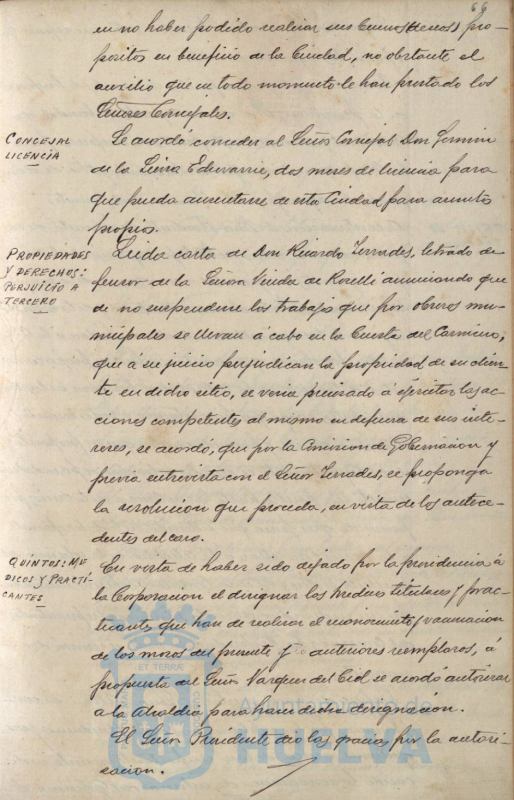 66
en no haber podido realizar sus buenos deseos pro-
pósitos en beneficio de la Ciudad, no obstante el
auxilio que en todo momento le han prestado los
Señores Concejales.
CONCEJAL
LICENCIA
Se acordó conceder al Señor Concejal Don Germán
de la Sierra Echevarria, dos meses de licencia para
que pueda ausentarse de esta Ciudad para asuntos
propios.
PROPIEDADES
Y DERECHOS:
PERJUICIO A
TERCERO
Leida carta de Don Ricardo Terrades, letrado de-
fensor de la Señora Viuda de Roselli anunciando que
de no suspenderse los trabajos que por obreros mu-
nicipales se llevan á cabo en la Cuesta del Carmen,
que á su juicio perjudican la propiedad de su clien-
te en dicho sitio, se veria precisado á ejercitar las ac-
ciones competentes al mismo en defensa de sus inte-
reses, se acordó, que por la Comision de Gobernacion y
previa entrevista con el Señor Terrades, se proponga
la resolucion que proceda, en vista de los antece-
dentes del caso.
QUINTOS: MÉ
DICOS Y PRACTI
CANTES
En vista de haber sido dejado por la providencia á
la Corporacion el designar los Medicos titulares y prac-
ticantes que han de realizar el reconocimiento y vacunacion
de los mozos del presente y anteriores reemplazos, á
propuesta del Señor Vazquez del Cid se acordó autorizar
a la Alcaldia para hacer dicha designacion.
El Señor Presidente dió las gracias por la autori-
zacion.
ET TERRÆ
Ayuntamiento de
HUELVA